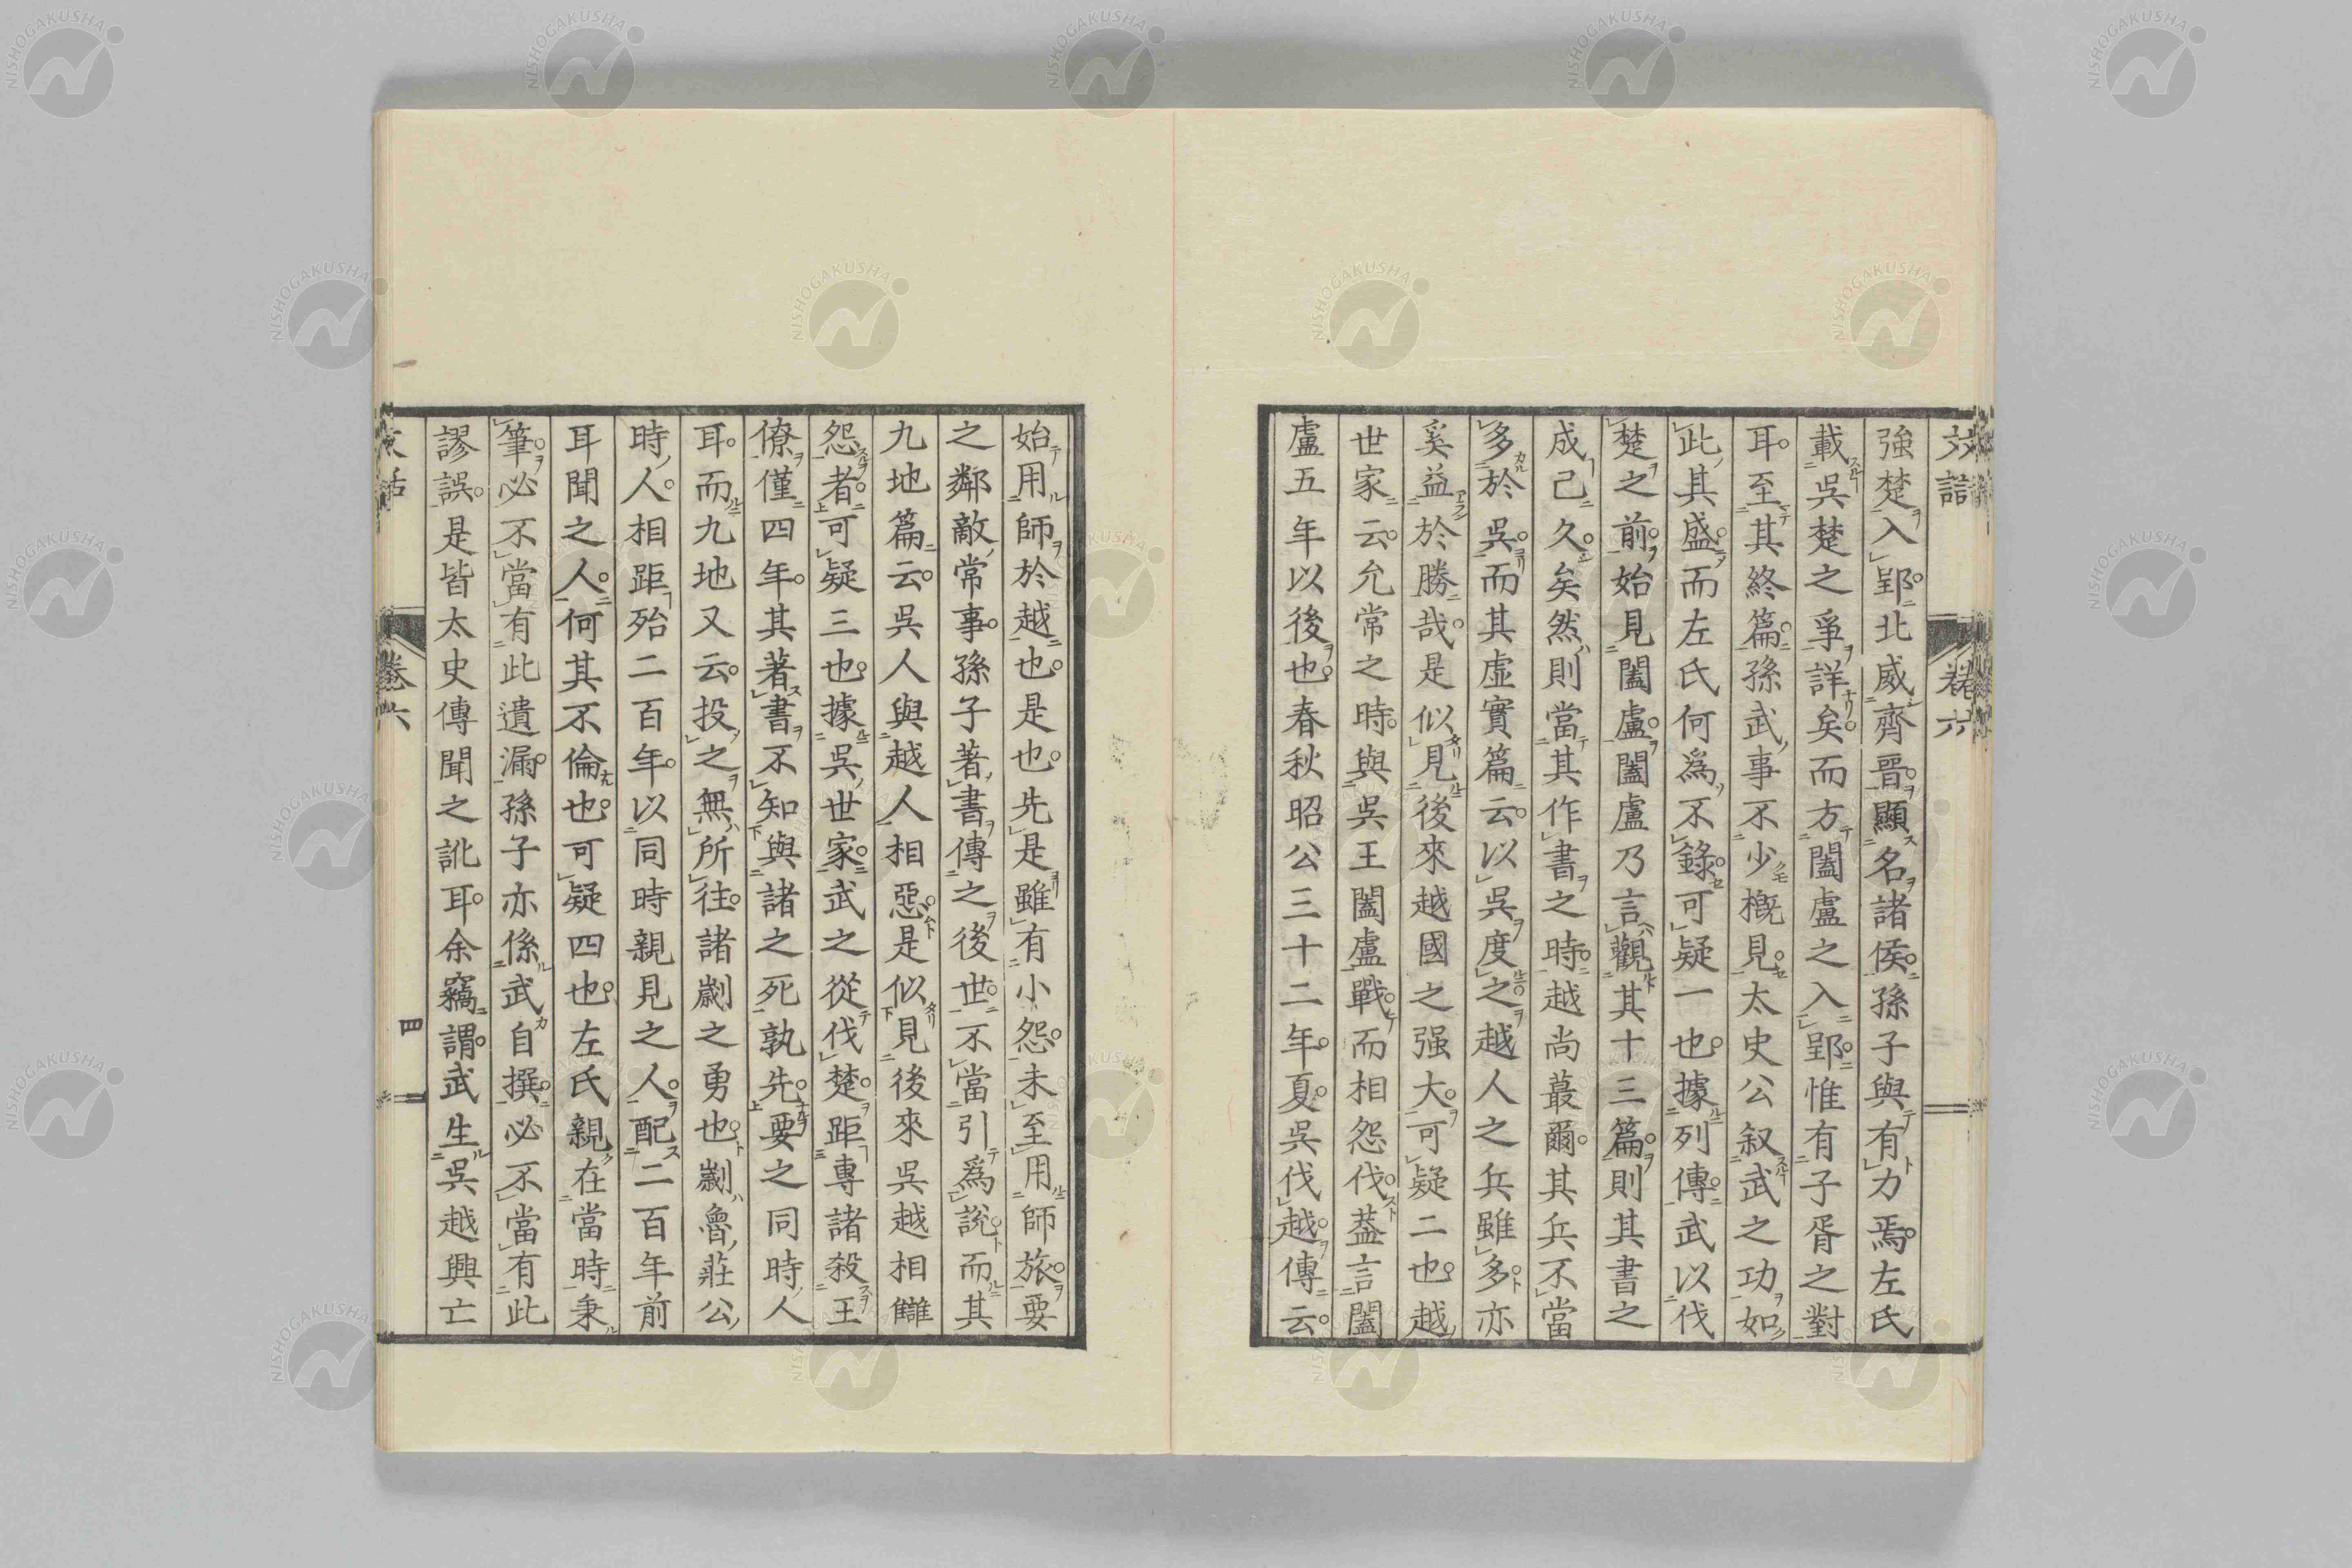 文話 卷六
強楚入郢北威齊晉顯名諸侯孫子與有力焉左氏
載吳楚之爭詳矣而方闔盧之入郢惟有子胥之對
耳至其終篇孫武事不少概見太史公叙武之功如
此其盛而左氏何爲不錄可疑一也據列傳武以伐
楚之前始見闔盧闔盧乃言觀其十三篇則其書之
成已久矣然則當其作書之時越尚蕞爾其兵不當
多於吳而其虛實篇云以吳度之越人之兵雖多亦
奚益於勝哉是似見後來越國之强大可疑二也越
世家云允常之時與吳王闔盧戰而相怨伐葢言闔
盧五年以後也春秋昭公三十二年夏吳伐越傳云
始用師於越也是也先是雖有小怨未至用師旅要
之鄰敵常事孫子著書傳之後世不當引爲說而其
九地篇云吳人與越人相惡是似見後來吳越相讎
怨者可疑三也據吳世家武之從伐楚距專諸殺王
僚僅四年其著書不知與諸之死孰先要之同時人
耳而九地又云投之無所往諸劌之勇也劌魯莊公
時人相距殆二百年以同時親見之人配二百年前
耳聞之人何其不倫也可疑四也左氏親在當時秉
筆必不當有此遺漏孫子亦係武自撰必不當有此
謬誤是皆太史傳聞之訛耳余竊謂武生吳越興亡
文話 卷六 四